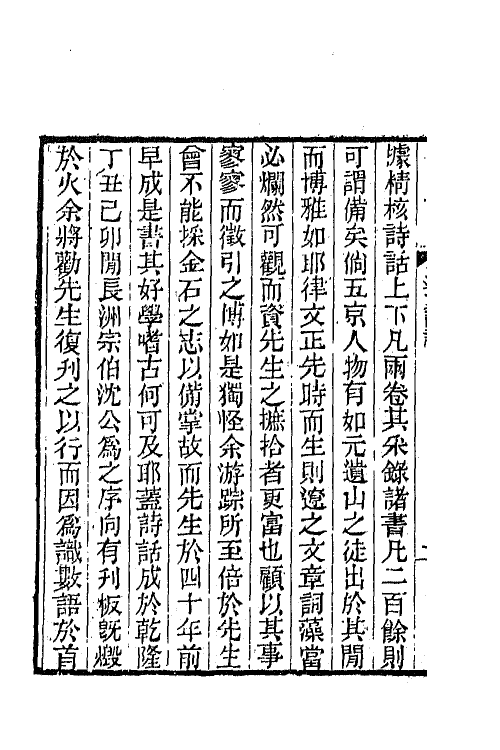 據精核詩話上下凡兩卷其采錄諸書凡二百餘則
可謂備矣倘五京人物有如元遺山之徒出於其閒
而博雅如耶律文正先時而生則遼之文章詞藻當
必爛然可觀而資先生之摭拾者更富也顧以其事
寥寥而徵引之博如是獨怪余游踪所至倍於先生
曾不能採金石之志以備掌故而先生於四十年前
早成是書其好學嗜古何可及耶蓋詩話成於乾隆
丁丑己卯閒長洲宗伯沈公為之序向有刊板旣燬
於火余將勸先生復刊之以行而因為識數語於首